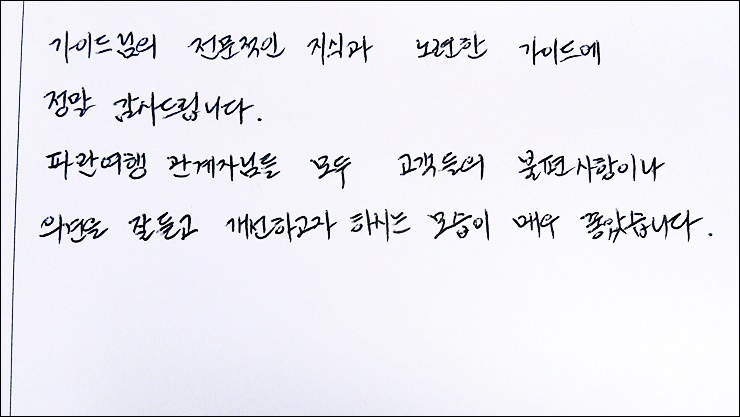 가이드님의 전문적인 지식과 노련한 가이드에
정말 감사드립니다.
파란여행 관계자님들 모두 고객들의 불편사항이나
의견을 잘듣고 개선하고자 하시는 모습이 매우 좋았습니다.